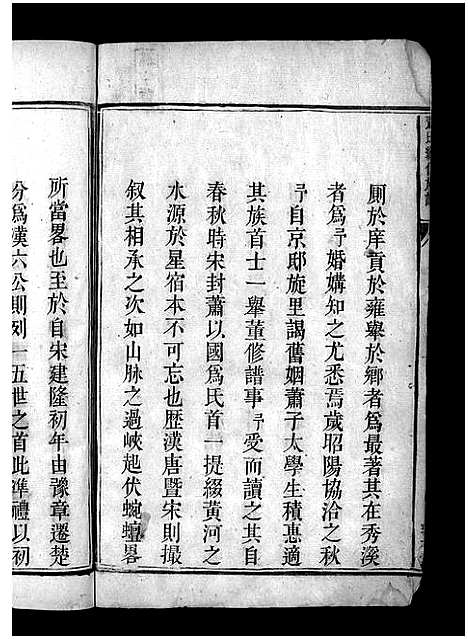 廁於庠貢於雍舉於鄉者爲最著其在秀溪
者爲予婚媾知之尤悉焉歲昭陽協洽之秋
予自京邸旋里謁舊姻蕭子太學生積惠適
其族首士一舉董修譜事予受而讀之其自
春秋時宋封蕭以國爲氏首一提綴黃河之
水源於星宿本不可忘也歴漢唐暨宋則撮
叙其相承之次如山脉之過峽起伏蜿蟺畧
所當畧也至於自宋建隆初年由豫章遷楚
分爲漢六公則列一五世之首此準禮以初